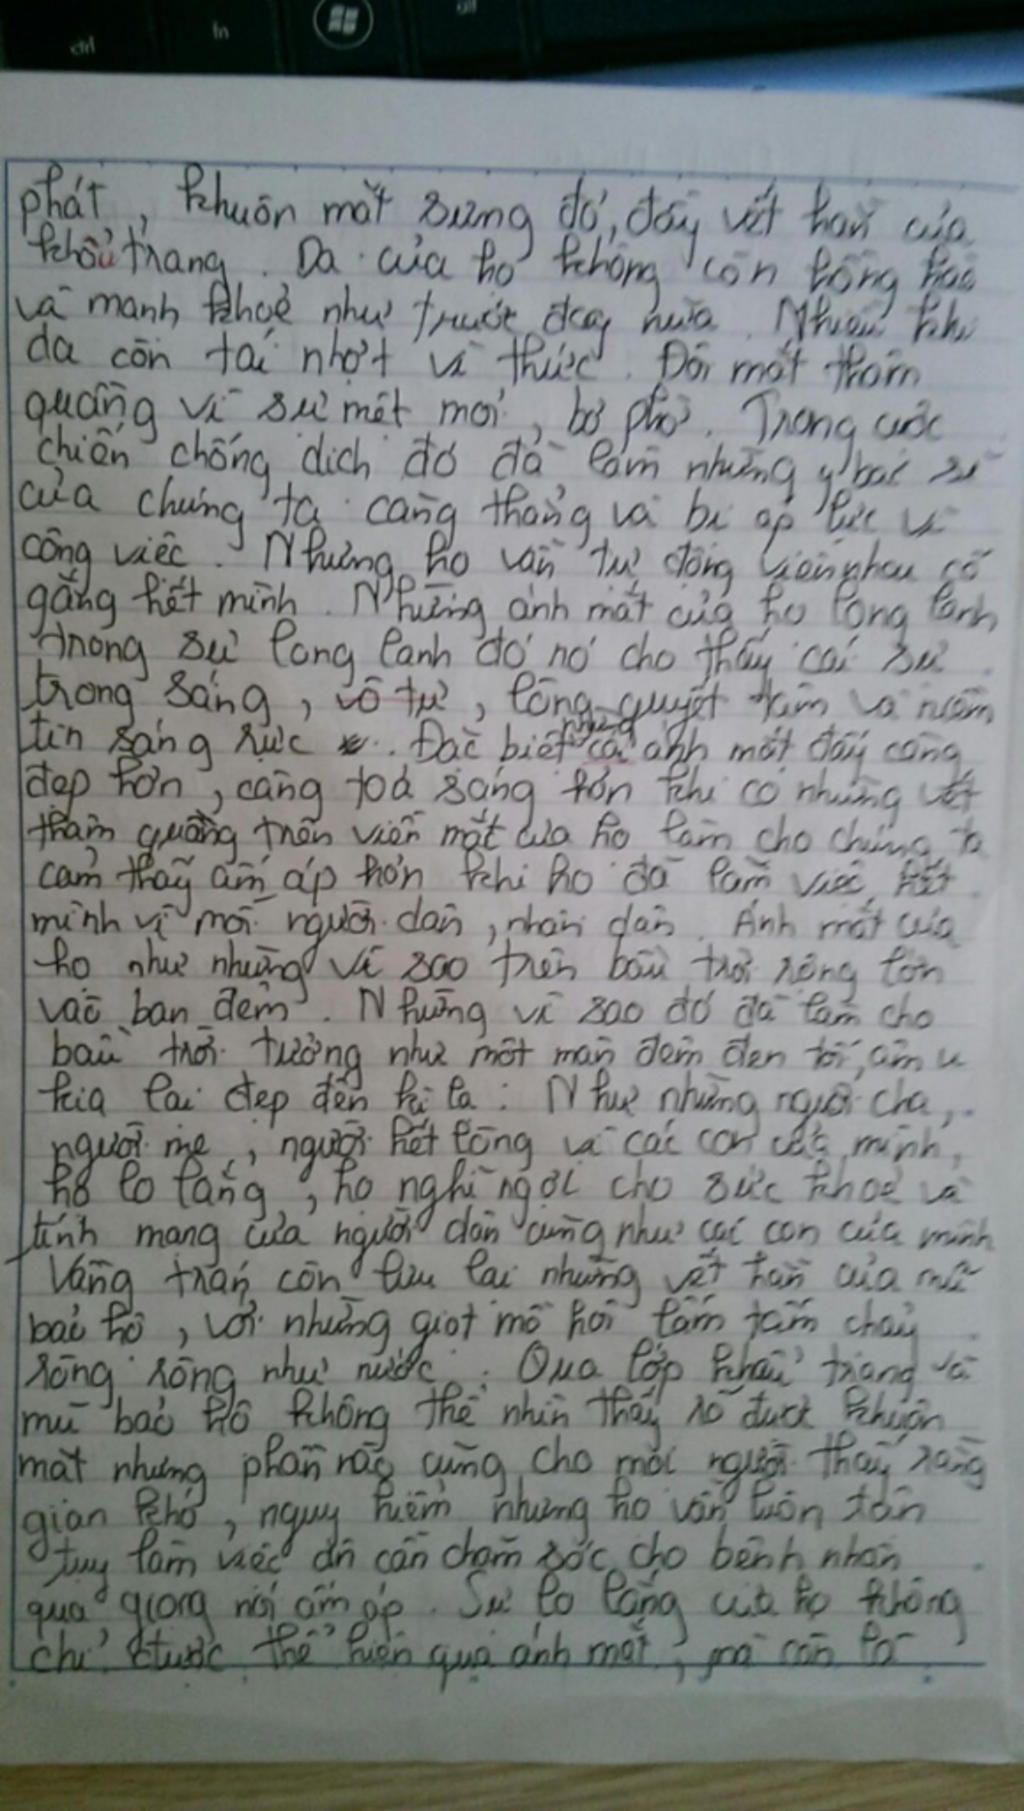 ctrl fn alt
phát, khuôn mặt sưng đỏ, đầy vết hằn của
khẩu trang. Da của họ không còn hồng hào
và mạnh khoẻ như trước đây nữa. Nhiều khi
da còn tái nhợt vì thức. Đôi mắt thâm
quầng vì sự mệt mỏi, bơ phờ. Trong cuộc
chiến chống dịch đó đã làm những y bác sĩ
của chúng ta căng thẳng và bị áp lực vì
công việc. Nhưng họ vẫn tự động viên nhau cố
gắng hết mình. Những ánh mắt của họ long lanh
trong sự long lanh đó nó cho thấy cái sự
trong sáng, vô tư, lòng quyết tâm và niềm
tin sáng rực. Đặc biệt những ánh mắt đấy càng
đẹp hơn, càng toả sáng hơn khi có những vết
thâm quầng trên viền mắt của họ làm cho chúng ta
cảm thấy ấm áp hơn khi họ đã làm việc hết
mình vì mỗi người dân, nhân dân. Ánh mắt của
họ như những vì sao trên bầu trời rộng lớn
vào ban đêm. Những vì sao đó đã làm cho
bầu trời tưởng như một màn đêm đen tối, âm u
kia lại đẹp đến kì lạ. Như những người cha,
người mẹ, người hết lòng vì các con của mình,
họ lo lắng, họ nghĩ ngợi cho sức khoẻ và
tính mạng của người dân cũng như các con của mình
Vầng trán còn lưu lại những vết hằn của mũ
bảo hộ, với những giọt mồ hôi lấm tấm chảy
ròng ròng như nước. Qua lớp khẩu trang và
mũ bảo hộ không thể nhìn thấy rõ được khuôn
mặt nhưng phần nào cũng cho mọi người thấy rằng
gian khó, nguy hiểm nhưng họ vẫn luôn tận
tuỵ làm việc ân cần chăm sóc cho bệnh nhân
qua giọng nói ấm áp. Sự lo lắng của họ không
chỉ được thể hiện qua ánh mắt, mà còn là